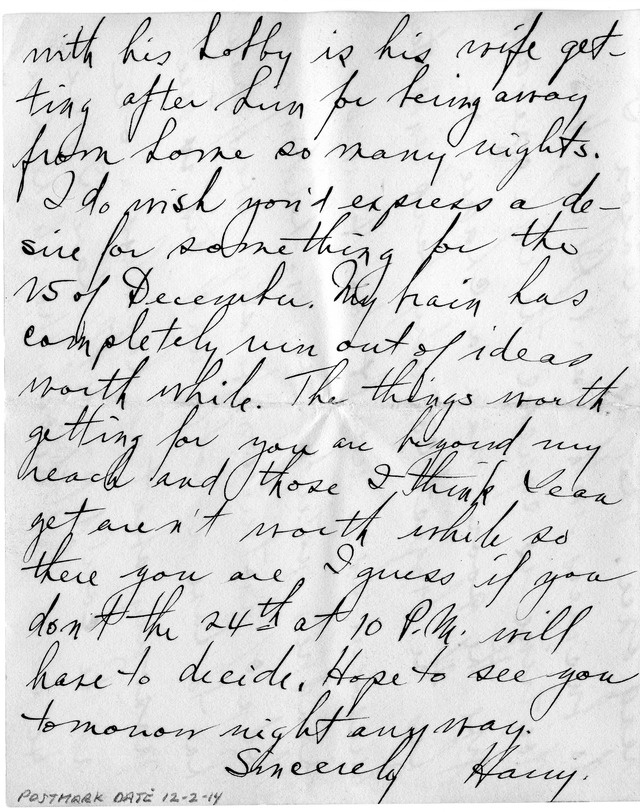 with his hobby is his wife get-
ting after him for being away
from home so many nights.
I do wish you'd express a de-
sire for something for the
25 of December. My brain has
completely run out of ideas
worth while. The things worth
getting for you are beyond my
reach and those I think I can
get aren't worth while so
there you are. I guess if you
don't the 24th at 10 P.M. will
have to decide. Hope to see you
tomorrow night anyway.
Sincerely Harry.
POSTMARK DATE 12-2-14